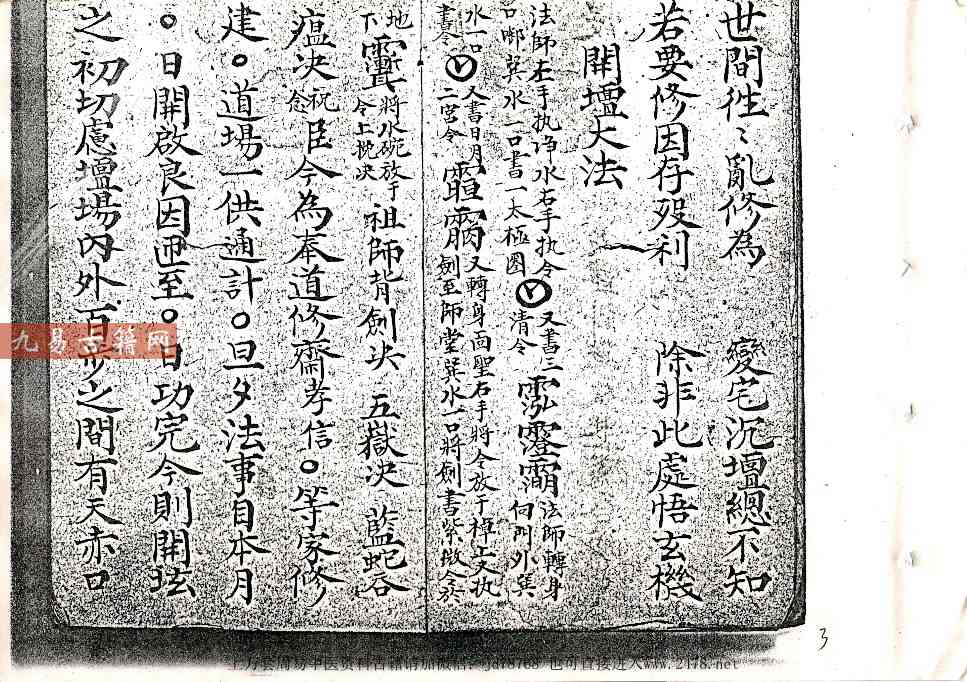 世間徃〻亂修為　變宅沉壇總不知
若要修因存殁利　除非此處悟玄機
開壇大法
法師左手执净水右手执令
口啣巽水一口書一太極圈
又書三
清令
法師轉身
向門外巽
水一口
書令
又書日月
二宫令
又轉身面聖右手將令放于棹上又执
劍至師堂巽水一口將劍書紫微令於
地
下
將水碗放于
令上挽决
祖師背劍决 五嶽决 藍蛇谷
瘟决
祝
念
臣今為奉道修齋孝信○等家修
建○道場一供通計○旦夕法事自本月
○日開啟良因迊至○日功完今則開玹
之初切慮壇場内外百步之間有天赤口
九易古籍网
3
上万套周易中医资料古籍请加微信：jd78768 也可直接进入www.2178.net